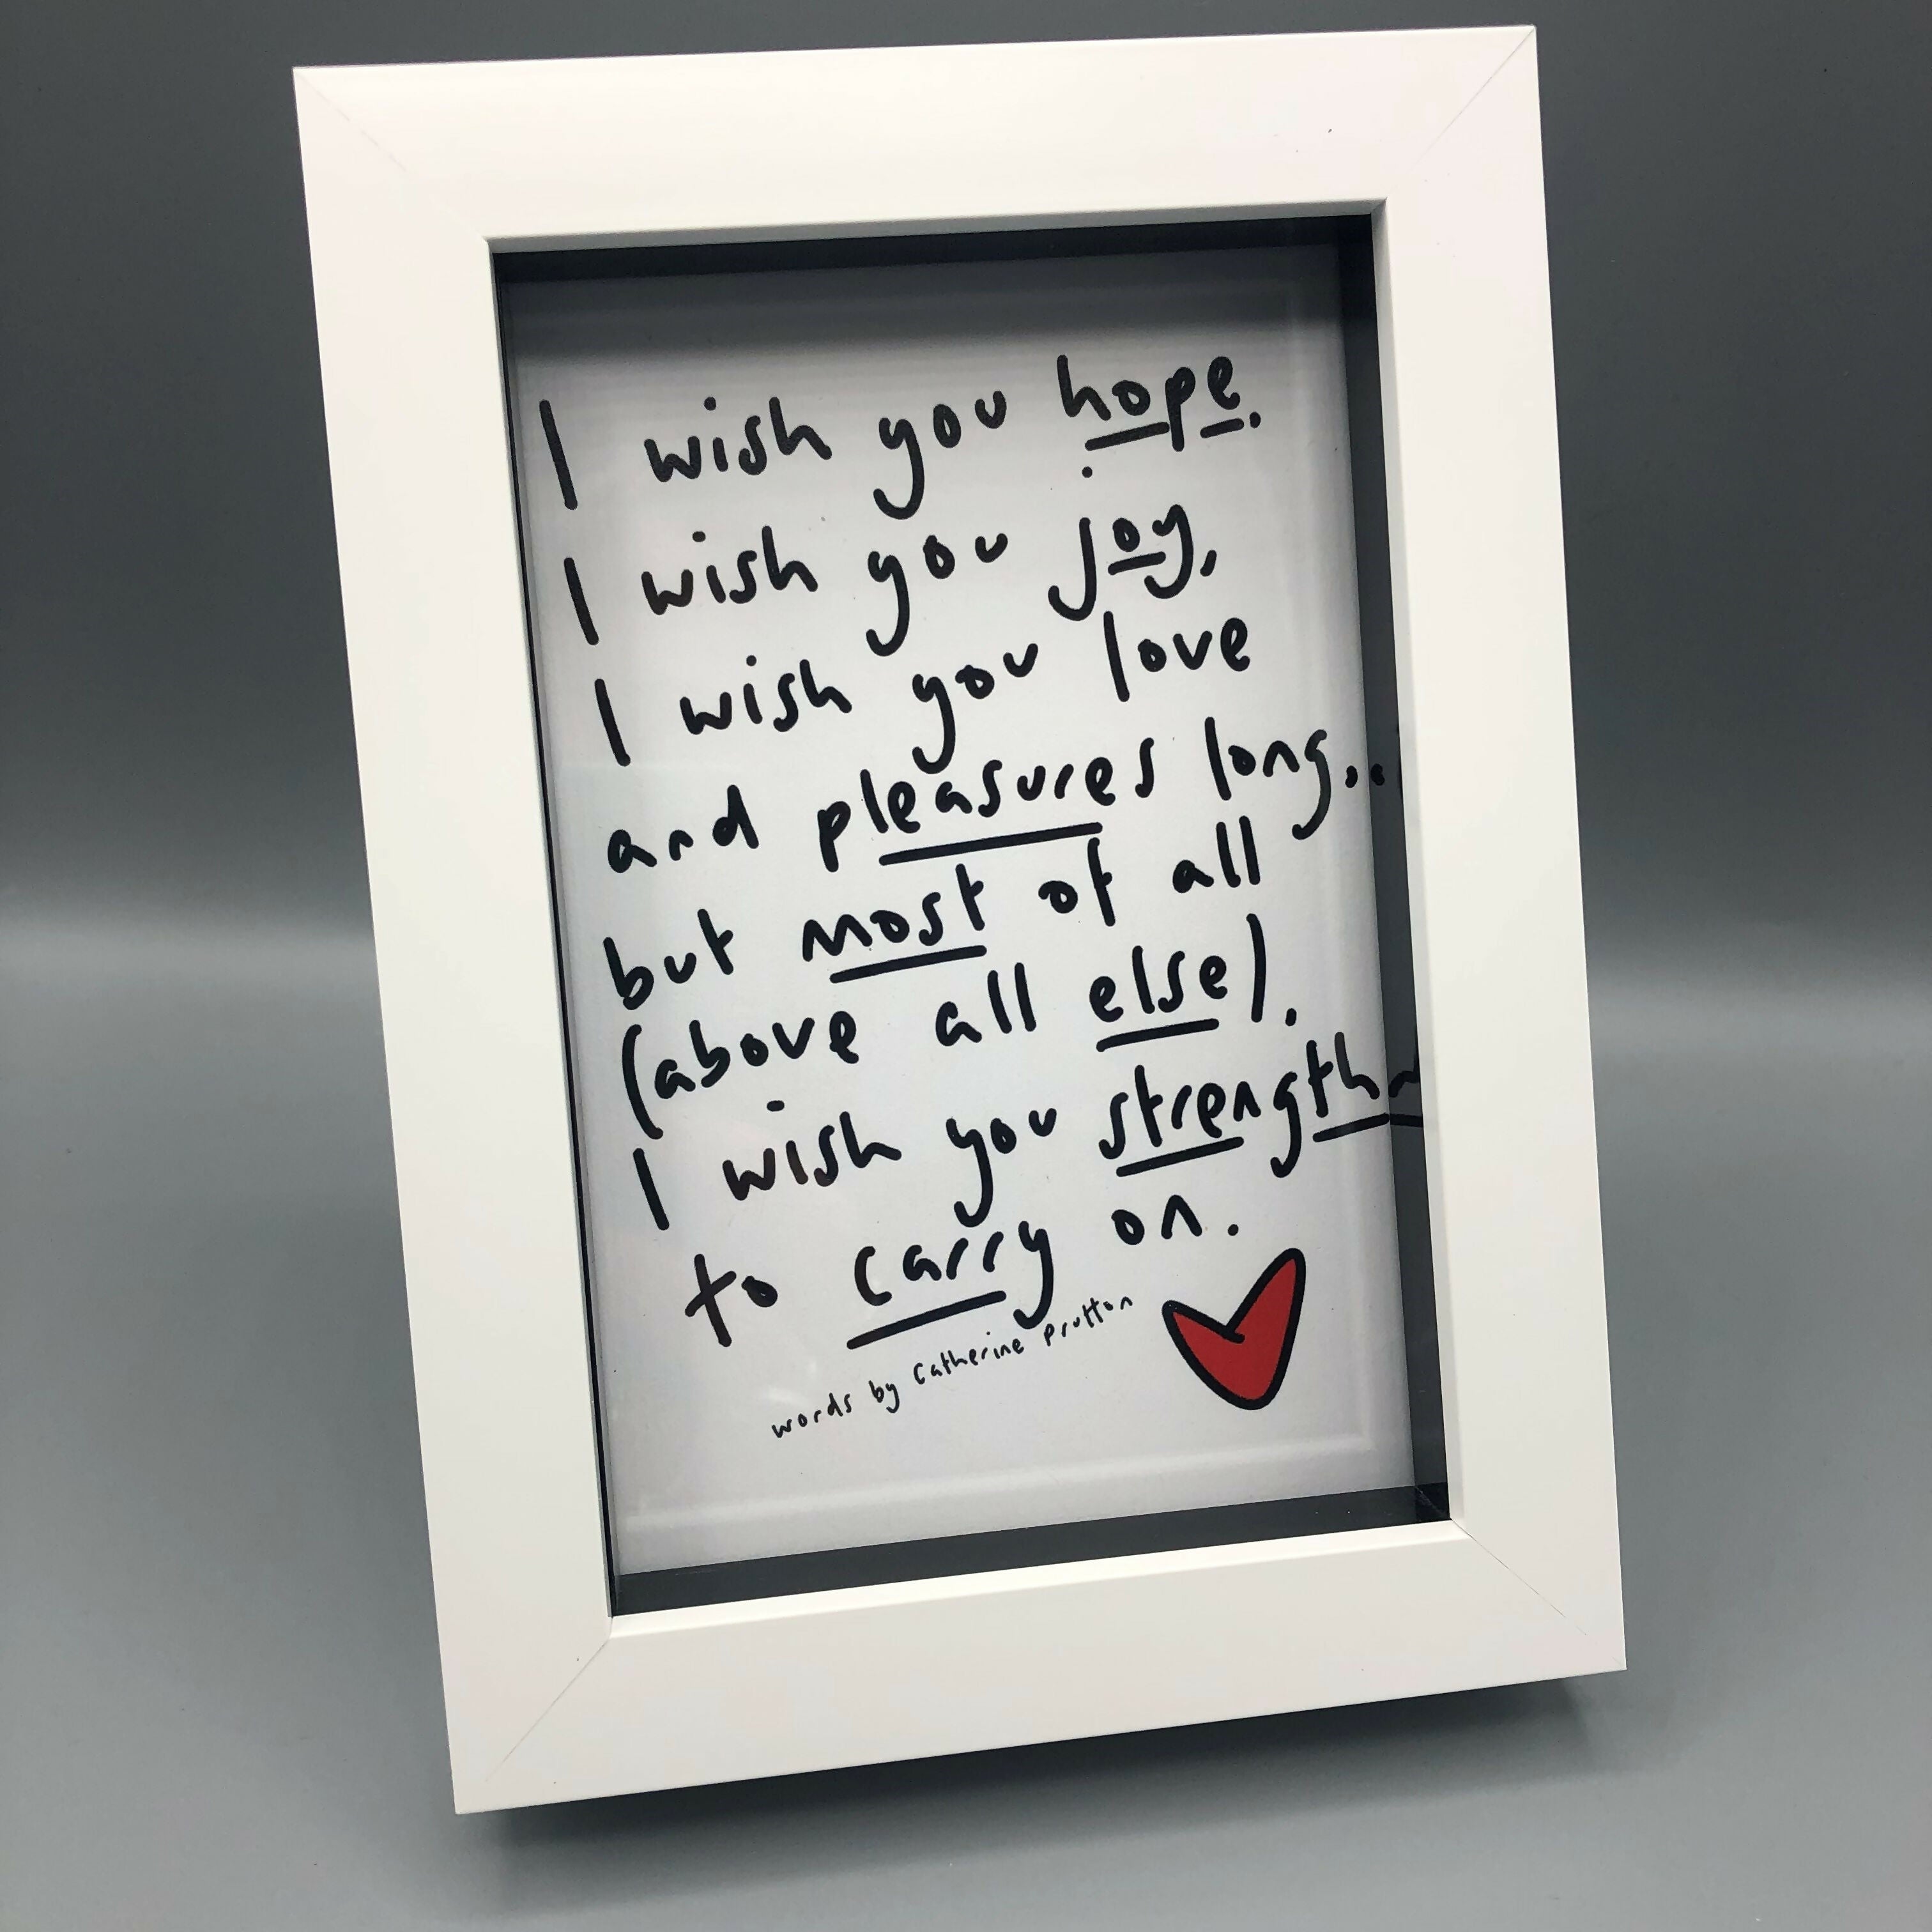 I wish you hope.
I wish you joy,
I wish you love
and pleasures long..
but most of all
(above all else).
I wish you strength
to carry on.
words by Catherine Prutton